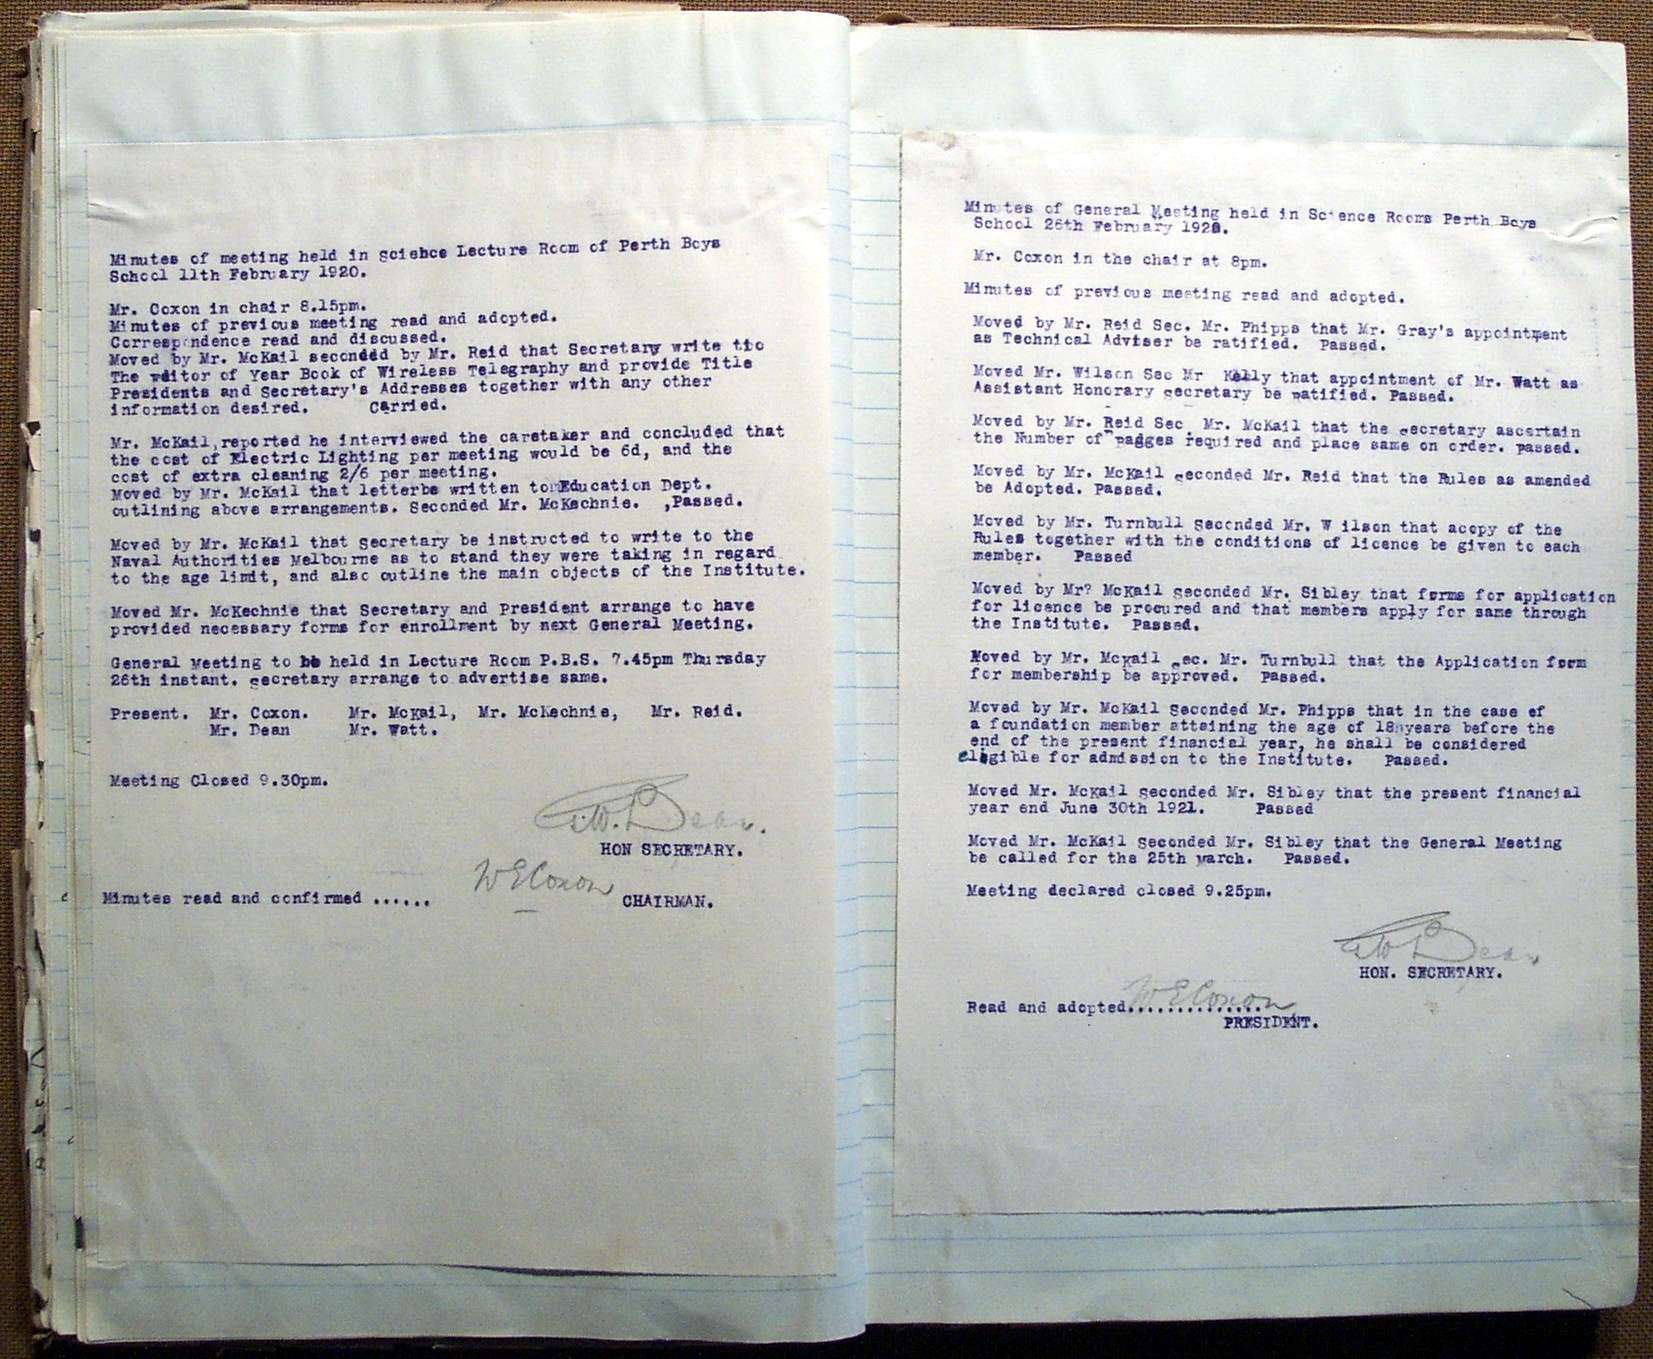 Minutes of meeting held in sciehce Lecture Room of Perth Boys
School 11th February 1920.
Mr. Coxon in chair 8.15pm.
Minutes of previous meeting read and adopted.
Correspondence read and discussed.
Moved by Mr. McKail seconded by Mr. Reid that Secretary write to
The Editor of Year Book of Wireless Telegraphy and provide Title
Presidents and Secretary's Addresses together with any other
information desired. Carried.
Mr. McKail, reported he interviewed the caretaker and concluded that
the cost of Electric Lighting per meeting would be 6d, and the
cost of extra cleaning 2/6 per meeting.
Moved by Mr. McKail that letterbe written to Education Dept.
outlining above arrangements. Seconded Mr. McKechnie. ,Passed.
Moved by Mr. McKail that Secretary be instructed to write to the
Naval Authorities Melbourne as to stand they were taking in regard
to the age limit, and also outline the main objects of the Institute.
Moved Mr. McKechnie that Secretary and President arrange to have
provided necessary forms for enrollment by next General Meeting.
General Meeting to be held in Lecture Room P.B.S. 7.45pm Thursday
26th instant. Secretary arrange to advertise same.
Present. Mr. Coxon. Mr. McKail, Mr. McKechnie, Mr. Reid.
Mr. Dean Mr. Watt.
Meeting Closed 9.30pm.
Dean.
HON SECRETARY.
W E Coxon
Minutes read and confirmed ...... CHAIRMAN.
Minutes of General Meeting held in Science Rooms Perth Boys
School 26th February 1920.
Mr. Coxon in the chair at 8pm.
Minutes of previous meeting read and adopted.
Moved by Mr. Reid Sec. Mr. Phipps that Mr. Gray's appointment
as Technical Adviser be ratified. Passed.
Moved Mr. Wilson Sec Mr Kelly that appointment of Mr. Watt as
Assistant Honorary Secretary be ratified. Passed.
Moved by Mr. Reid Sec. Mr. McKail that the Secretary ascertain
the Number of Badges required and place same on order. Passed.
Moved by Mr. McKail Seconded Mr. Reid that the Rules as amended
be Adopted. Passed.
Moved by Mr. Turnbull Seconded Mr. W ilson that acopy of the
Rules together with the conditions of licence be given to each
member. Passed
Moved by Mr? McKail seconded Mr. Sibley that forms for application
for licence be procured and that members apply for same through
the Institute. Passed.
Moved by Mr. McKail Sec. Mr. Turnbull that the Application form
for membership be approved. Passed.
Moved by Mr. McKail Seconded Mr. Phipps that in the case of
a foundation member attaining the age of 18 years before the
end of the present financial year, he shall be considered
eligible for admission to the Institute. Passed.
Moved Mr. McKail Seconded Mr. Sibley that the present financial
year end June 30th 1921. Passed
Moved Mr. McKail Seconded Mr. Sibley that the General Meeting
be called for the 25th March. Passed.
Meeting declared closed 9.25pm.
Dean
HON. SECRETARY.
W E Coxon
Read and adopted...............
PRESIDENT.